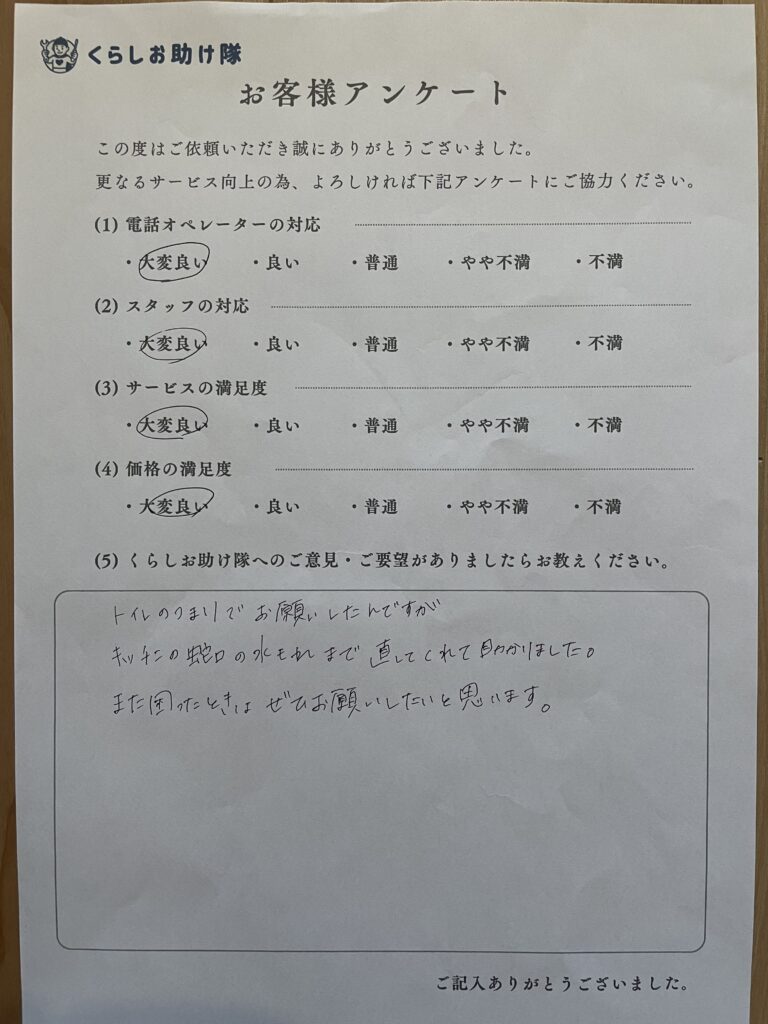 くらしお助け隊
お客様アンケート
この度はご依頼いただき誠にありがとうございました。
更なるサービス向上の為、よろしければ下記アンケートにご協力ください。
(1) 電話オペレーターの対応
・大変良い ・良い ・普通 ・やや不満 ・不満
(2) スタッフの対応
・大変良い ・良い ・普通 ・やや不満 ・不満
(3) サービスの満足度
・大変良い ・良い ・普通 ・やや不満 ・不満
(4) 価格の満足度
・大変良い ・良い ・普通 ・やや不満 ・不満
(5) くらしお助け隊へのご意見・ご要望がありましたらお教えください。
トイレのつまりでお願いしたんですが
キッチンの蛇口の水もれまで直してくれて助かりました。
また困ったときはぜひお願いしたいと思います。
ご記入ありがとうございました。